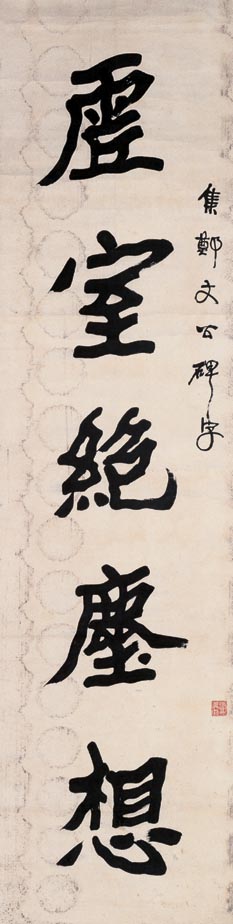 集鄭文公碑字
虛室絕塵想